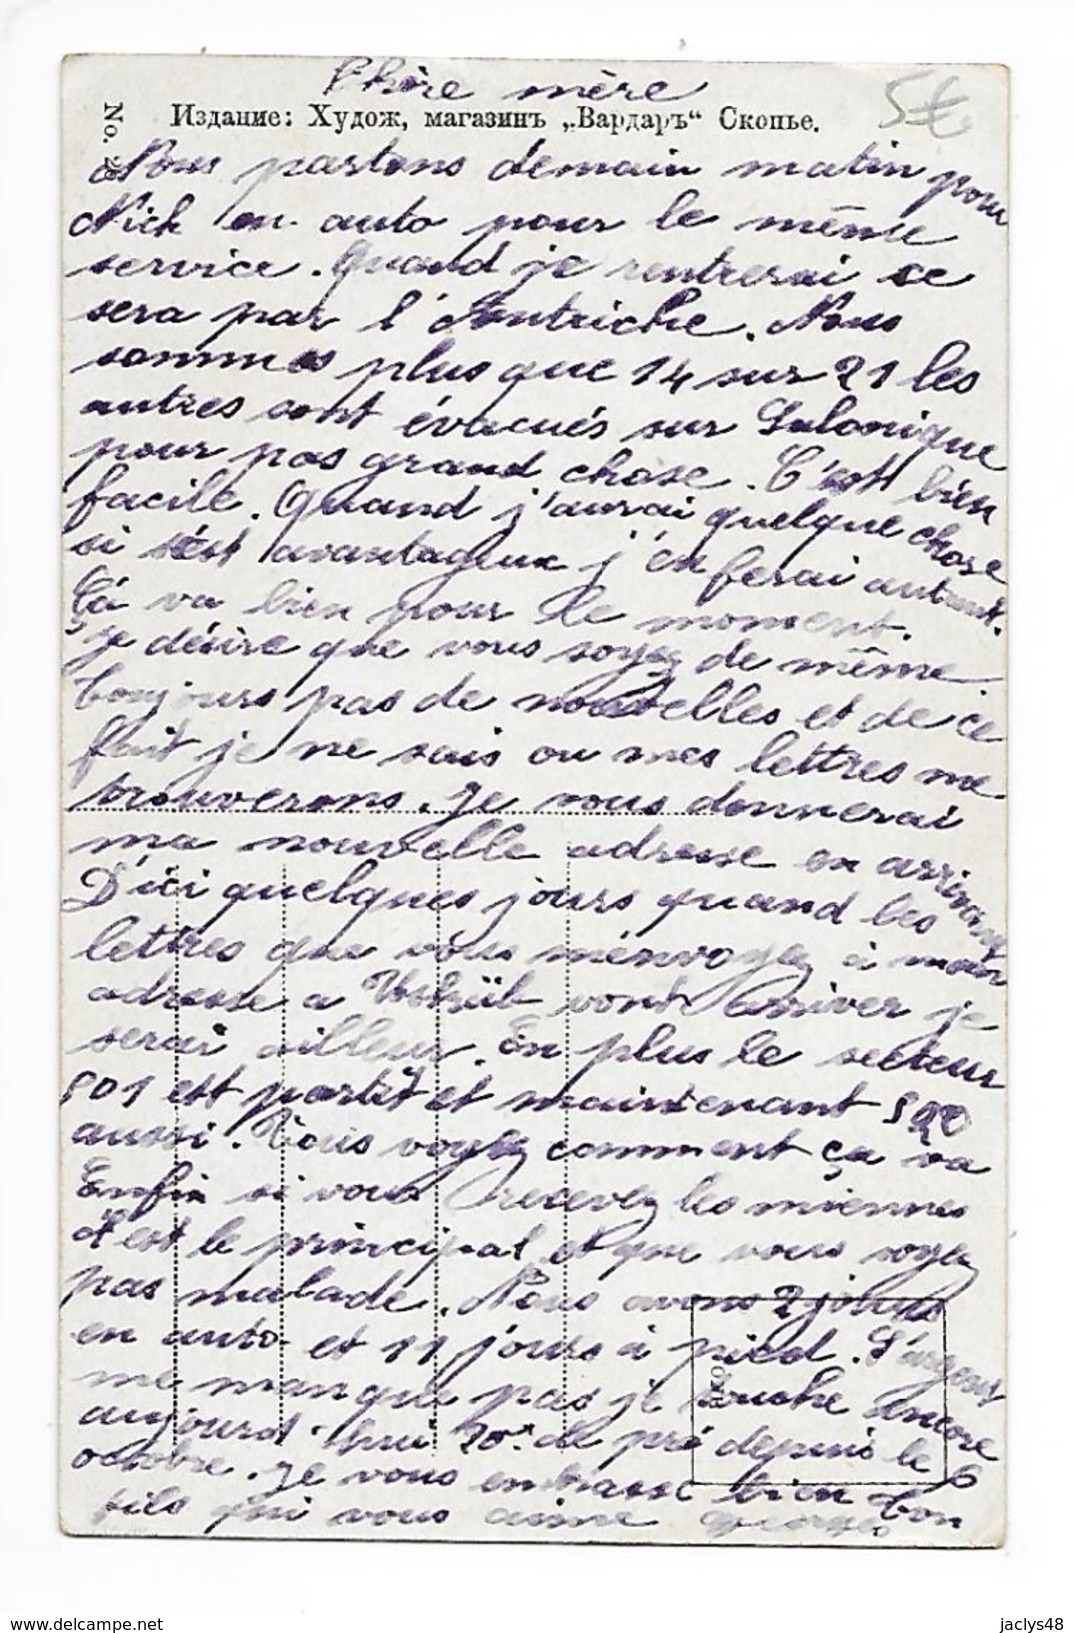 Chère mère
No. 29
Издание: Худож, магазинъ „Вардаръ“ Скопье.
5€
Nous partons demain matin pour
Nich en auto pour le même
service. Quand je rentrerai ce
sera par l'Autriche. Nous
sommes plus que 14 sur 21 les
autres sont évacués sur Salonique
pour pas grand chose. C'est bien
facile. Quand j'aurai quelque chose
si s'est avantageux j'en ferai autant.
Çá va bien pour le moment.
je désire que vous soyez de même
toujours pas de nouvelles et de ce
fait je ne sais ou mes lettres me
trouverons. Je vous donnerai
ma nouvelle adresse en arrivant
D'ici quelques jours quand les
lettres que vous m'envoyez à mon
adresse a Uskub vont arriver je
serai ailleur. En plus le secteur
501 est partit et maintenant 520
aussi. Vous voyez comment ça va
Enfin si vous recevez les miennes
s'est le principal et que vous soyez
pas malade. Nous avons 2 jours
en auto et 11 jours à pied. L'argent
me manque pas je touche encore
aujourd'hui 20 de pré depuis le 6
octobre. Je vous embrasse bien ton
fils qui vous aime Georges
www.delcampe.net
jaclys48